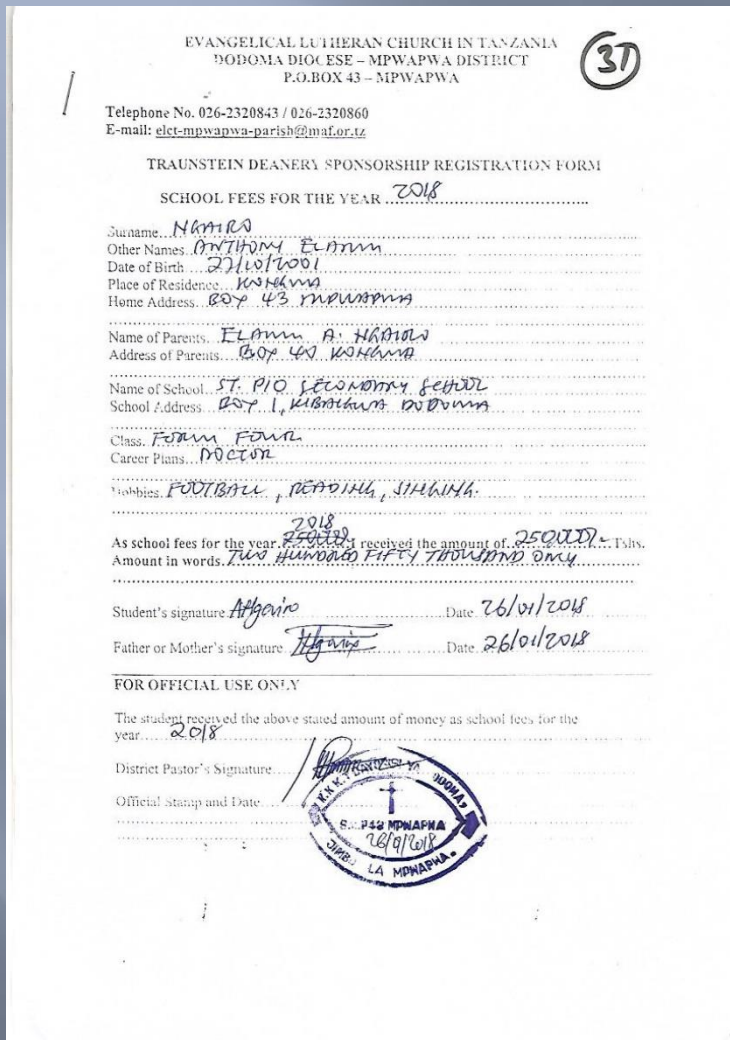 EVANGELICAL LUTHERAN CHURCH IN TANZANIA
DODOMA DIOCESE – MPWAPWA DISTRICT
P.O.BOX 43 – MPWAPWA
31
Telephone No. 026-2320843 / 026-2320860
E-mail: elct-mpwapwa-parish@maf.or.tz
TRAUNSTEIN DEANERY SPONSORSHIP REGISTRATION FORM
SCHOOL FEES FOR THE YEAR 2018
Surname NGAIRO
Other Names ANTHONY ELAMU
Date of Birth 27/10/2001
Place of Residence KONGWA
Home Address BOX 43 MPWAPWA
Name of Parents ELAMU A. NGAIRO
Address of Parents BOX 40 KONGWA
Name of School ST. PIO SECONDARY SCHOOL
School Address BOX 1, KIBAIGWA DODOMA
Class. FORM FOUR
Career Plans. DOCTOR
Hobbies. FOOTBALL, READING, SINGING.
2018
As school fees for the year I received the amount of 250,000/= Tshs.
Amount in words. TWO HUNDRED FIFTY THOUSAND ONLY
Student's signature ANgairo Date 26/01/2018
Father or Mother's signature Date 26/01/2018
FOR OFFICIAL USE ONLY
The student received the above stated amount of money as school fees for the
year 2018
District Pastor's Signature
Official Stamp and Date
K.K.K.T DAYOSISI YA DODOMA
S.L.P 43 MPWAPWA
26/9/2018
JIMBO LA MPWAPWA